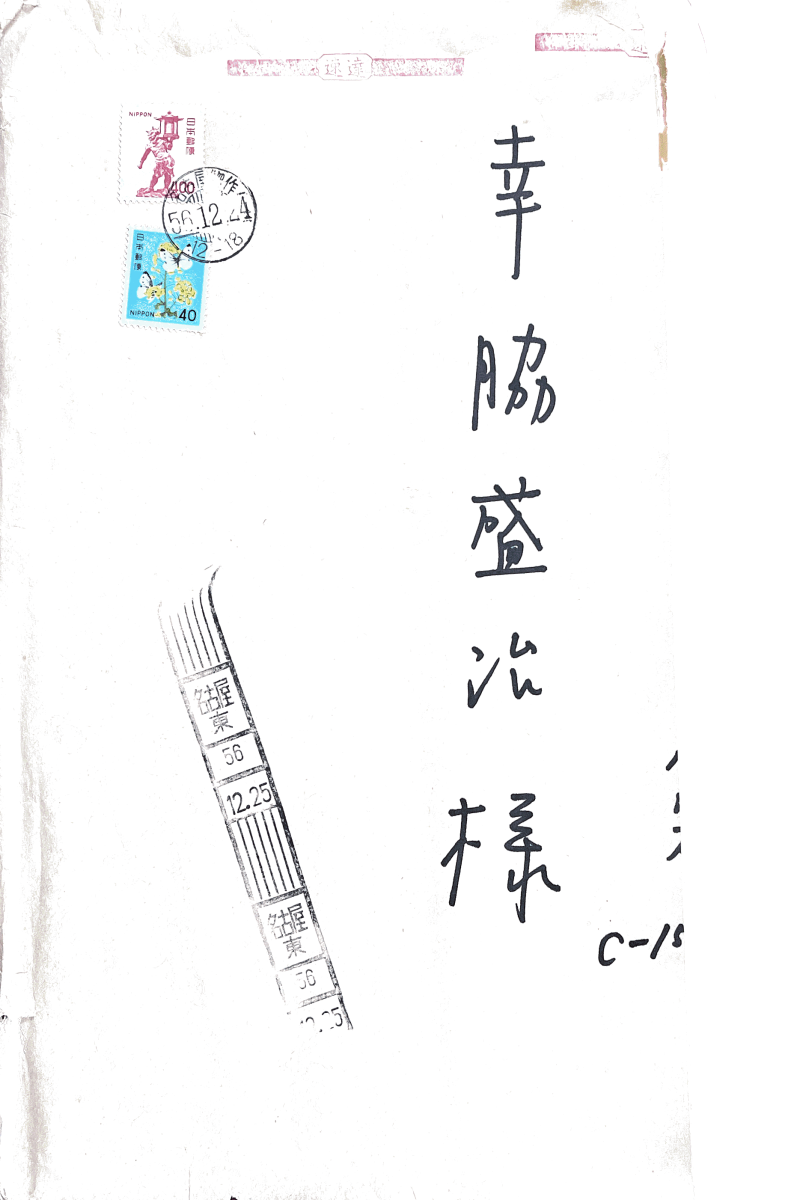 速達
NIPPON
日本郵便
400
56.12.24
12-18
日本郵便
NIPPON 40
幸脇盛治様
名古屋
東
56
12.25
名古屋
東
56
12.25